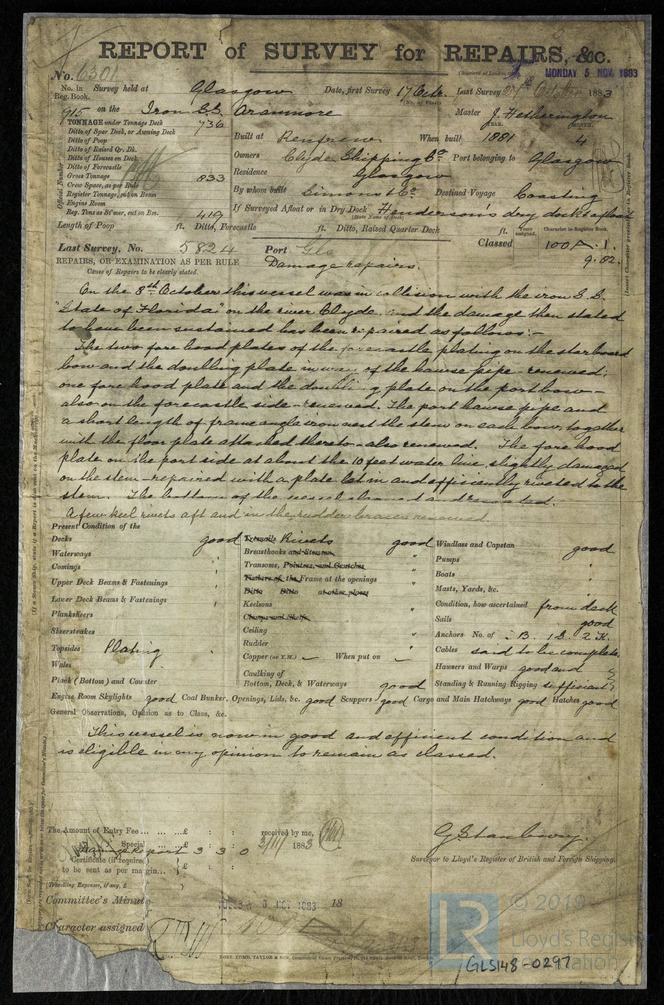 REPORT of SURVEY for REPAIRS, &c.
No. 6301
MONDAY 5 NOV. 1883
No. in Reg. Book. Survey held at Glasgow Date, first Survey 17 Octr. Last Survey October 1883
915 on the Iron S.S. Aranmore Master J. Hetherington
TONNAGE under Tonnage Deck 736
Ditto of Spar Deck, or Awning Deck
Ditto of Poop
Ditto of Raised Qr. Dk.
Ditto of Houses on Deck
Ditto of Forecastle
Gross Tonnage 833
Crew Space, as per Rule
Register Tonnage, cut on Beam
Engine Room
Reg. Tons as St'mer, cut on Bm. 419
Built at Renfrew When built 1881 4
Owners Clyde Shipping Co. Port belonging to Glasgow
Residence Glasgow
By whom built Simons & Co. Destined Voyage Coasting
If Surveyed Afloat or in Dry Dock Henderson's dry dock & afloat
Length of Poop ft. Ditto, Forecastle ft. Ditto, Raised Quarter Deck ft.
Last Survey. No. 5824 Port Gls Classed 100A.1.
9.82.
REPAIRS, OR EXAMINATION AS PER RULE
Cause of Repairs to be clearly stated.
Damage repairs.
On the 8th October this vessel was in collision with the iron S.S.
"State of Florida" on the river Clyde, and the damage then stated
to have been sustained has been repaired as follows:-
The two fore hood plates of the forecastle plating on the starboard
bow and the doubling plate in way of the hawse pipe - renewed;
one fore hood plate and the doubling plate on the port bow
also on the forecastle side - renewed. The port hawse pipe and
a short length of frame angle iron next the stem on each bow, together
with the floor plate attached thereto - also renewed. The fore hood
plate on the port side at about the 10 feet water line, slightly damaged
on the stem - repaired with a plate let in and efficiently riveted to the
stem. The bottom of the vessel cleaned and recoated.
A few keel rivets aft and in the rudder braces renewed.
Present Condition of the
Decks good
Waterways "
Comings "
Upper Deck Beams & Fastenings "
Lower Deck Beams & Fastenings "
Planksheers
Sheerstrakes
Topsides Plating "
Wales
Plank (Bottom) and Counter
Treenails Rivets good
Breasthooks and Stemson "
Transoms, Pointers, and Crutches "
Timbers of the Frame at the openings "
Ditto Ditto at other places
Keelsons "
Clamps and Shelfs
Ceiling "
Rudder "
Copper (or Y.M.) When put on
Caulking of
Bottom, Deck, & Waterways good
Windlass and Capstan good
Pumps "
Boats "
Masts, Yards, &c. "
Condition, how ascertained from deck
Sails good
Anchors No. of 3 B. 1 S. 2 K.
Cables said to be complete
Hawsers and Warps good and
Standing & Running Rigging sufficient
Engine Room Skylights good Coal Bunker, Openings, Lids, &c. good Scuppers good Cargo and Main Hatchways good Hatches good
General Observations, Opinion as to Class, &c.
This vessel is now in good and efficient condition and
is eligible in my opinion to remain as classed.
The Amount of Entry Fee ... ... £ : : received by me,
Special ... £
Damage Report 3 3 0 3/11/ 1883
Certificate (if required)
to be sent as per margin... £
Travelling Expenses, if any, £
G Stanbury.
Surveyor to Lloyd's Register of British and Foreign Shipping.
Committee's Minute 18
Character assigned
© 2019
Lloyd's Register
Foundation
LR
GLS148-0297